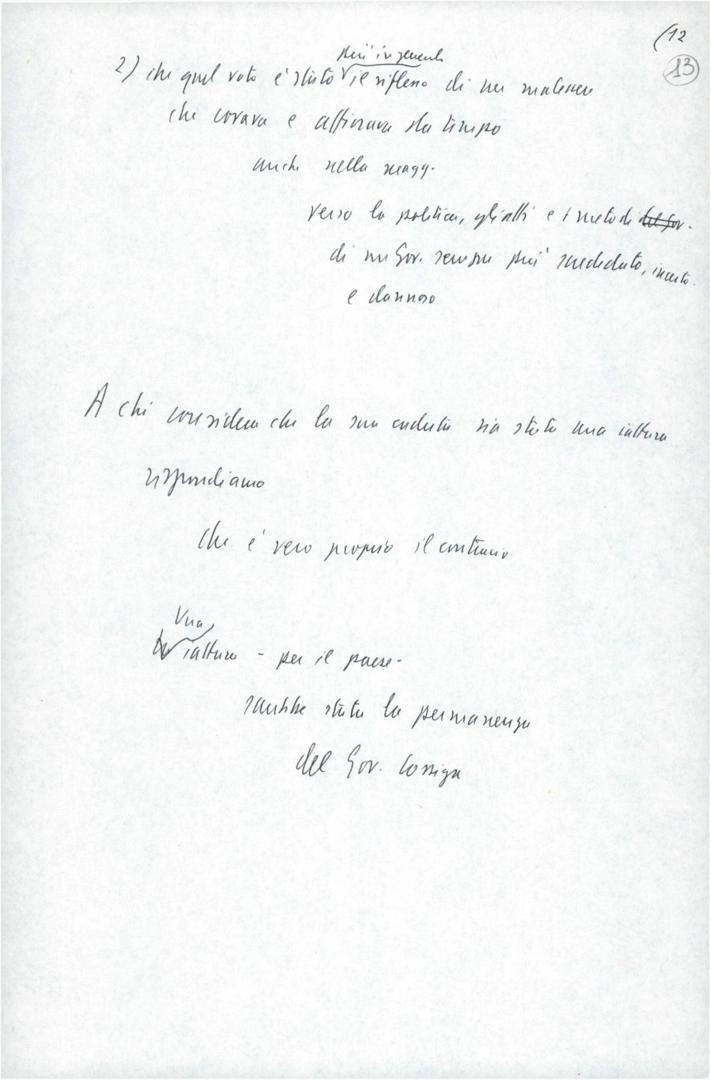 (12
13
più in generale
2) che quel voto è stato il riflesso di un malessere
che covava e affiorava da tempo
anche nella magg.
verso la politica, gli atti e i metodi del Gov.
di un Gov. sempre più screditato, incerto
e dannoso
A chi considera che la sua caduta sia stata una iattura
rispondiamo
che è vero proprio il contrario
Una
iattura - per il paese -
sarebbe stata la permanenza
del Gov. Cossiga